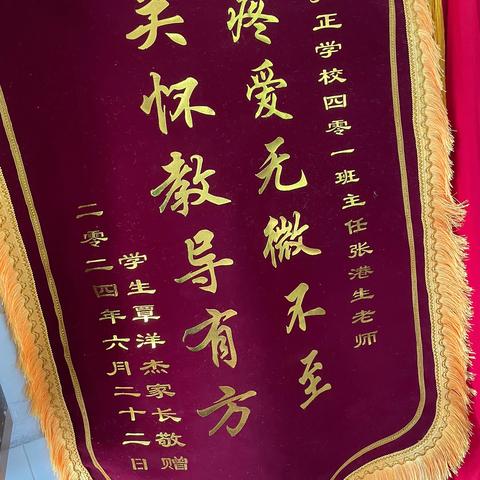 正学校四零一班主任张港生老师
疼爱无微不至
关怀教导有方
学生覃洋杰家长敬赠
二零二四年六月二十二日